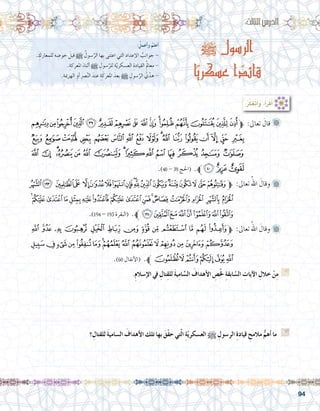 الدرس الثالث
أتعلم وأعمل
- جوانب الإعداد التي اعتنى بها الرسول ﷺ قبل خوضه للمعارك.
- معالم القيادة العسكرية للرسول ﷺ أثناء المعركة.
- هدي الرسول ﷺ بعد المعركة عند النصر أو الهزيمة.
الرسول ﷺ
قائدًا عسكريًا
أقرأ وأفكر
قال تعالى: ﴿ أُذِنَ لِلَّذِينَ يُقَاتَلُونَ بِأَنَّهُمْ ظُلِمُوا وَإِنَّ اللَّهَ عَلَى نَصْرِهِمْ لَقَدِيرٌ (٣٩) الَّذِينَ أُخْرِجُوا مِنْ دِيَارِهِمْ
بِغَيْرِ حَقٍّ إِلَّا أَنْ يَقُولُوا رَبُّنَا اللَّهُ وَلَوْلَا دَفْعُ اللَّهِ النَّاسَ بَعْضَهُمْ بِبَعْضٍ لَهُدِّمَتْ صَوَامِعُ وَبِيَعٌ
وَصَلَوَاتٌ وَمَسَاجِدُ يُذْكَرُ فِيهَا اسْمُ اللَّهِ كَثِيرًا وَلَيَنْصُرَنَّ اللَّهُ مَنْ يَنْصُرُهُ إِنَّ اللَّهَ
لَقَوِيٌّ عَزِيزٌ (٤٠) ﴾. (الحج
قال الله تعالى: ﴿ وَقَاتِلُوهُمْ حَتَّى لَا تَكُونَ فِتْنَةٌ وَيَكُونَ الدِّينُ لِلَّهِ فَإِنِ انْتَهَوْا فَلَا عُدْوَانَ إِلَّا عَلَى الظَّالِمِينَ (١٩٣) الشَّهْرُ
الْحَرَامُ بِالشَّهْرِ الْحَرَامِ وَالْحُرُمَاتُ قِصَاصٌ فَمَنِ اعْتَدَى عَلَيْكُمْ فَاعْتَدُوا عَلَيْهِ بِمِثْلِ مَا اعْتَدَى عَلَيْكُمْ
وَاتَّقُوا اللَّهَ وَاعْلَمُوا أَنَّ اللَّهَ مَعَ الْمُتَّقِينَ (١٩٤) ﴾. (البقرة
قال الله تعالى: ﴿ وَأَعِدُّوا لَهُمْ مَا اسْتَطَعْتُمْ مِنْ قُوَّةٍ وَمِنْ رِبَاطِ الْخَيْلِ تُرْهِبُونَ بِهِ عَدُوَّ اللَّهِ
وَعَدُوَّكُمْ وَآخَرِينَ مِنْ دُونِهِمْ لَا تَعْلَمُونَهُمُ اللَّهُ يَعْلَمُهُمْ وَمَا تُنْفِقُوا مِنْ شَيْءٍ فِي سَبِيلِ
اللَّهِ يُوَفَّ إِلَيْكُمْ وَأَنْتُمْ لَا تُظْلَمُونَ ﴾. (الأنفال 60).
من خلال الآيات السابقة لخّص الأهداف السامية للقتال في الإسلام.
ما أهم ملامح قيادة الرسول ﷺ العسكرية التي حقق بها تلك الأهداف السامية للقتال؟
94